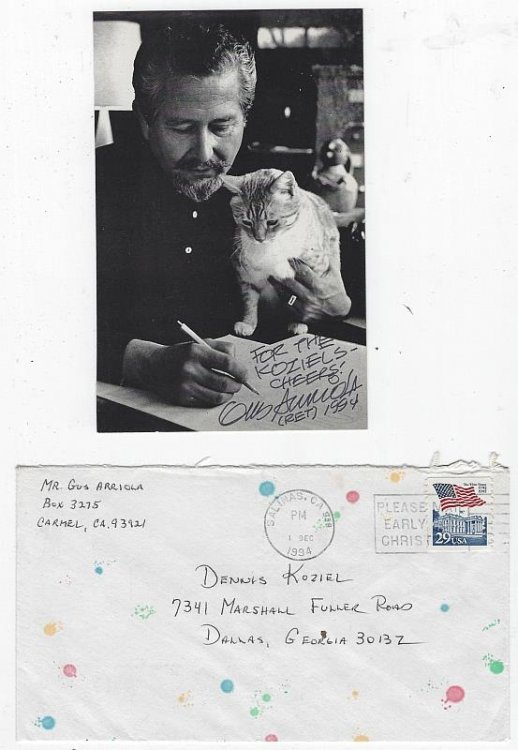 FOR THE
KOZIELS-
CHEERS!
Gus Arriola
(RET) 1994
MR. GUS ARRIOLA
BOX 3275
CARMEL, CA. 93921
SALINAS, CA 939
PM
1 DEC
1994
PLEASE
EARLY
CHRIST
29 USA
DENNIS KOZIEL
7341 MARSHALL FULLER ROAD
DALLAS, GEORGIA 30132